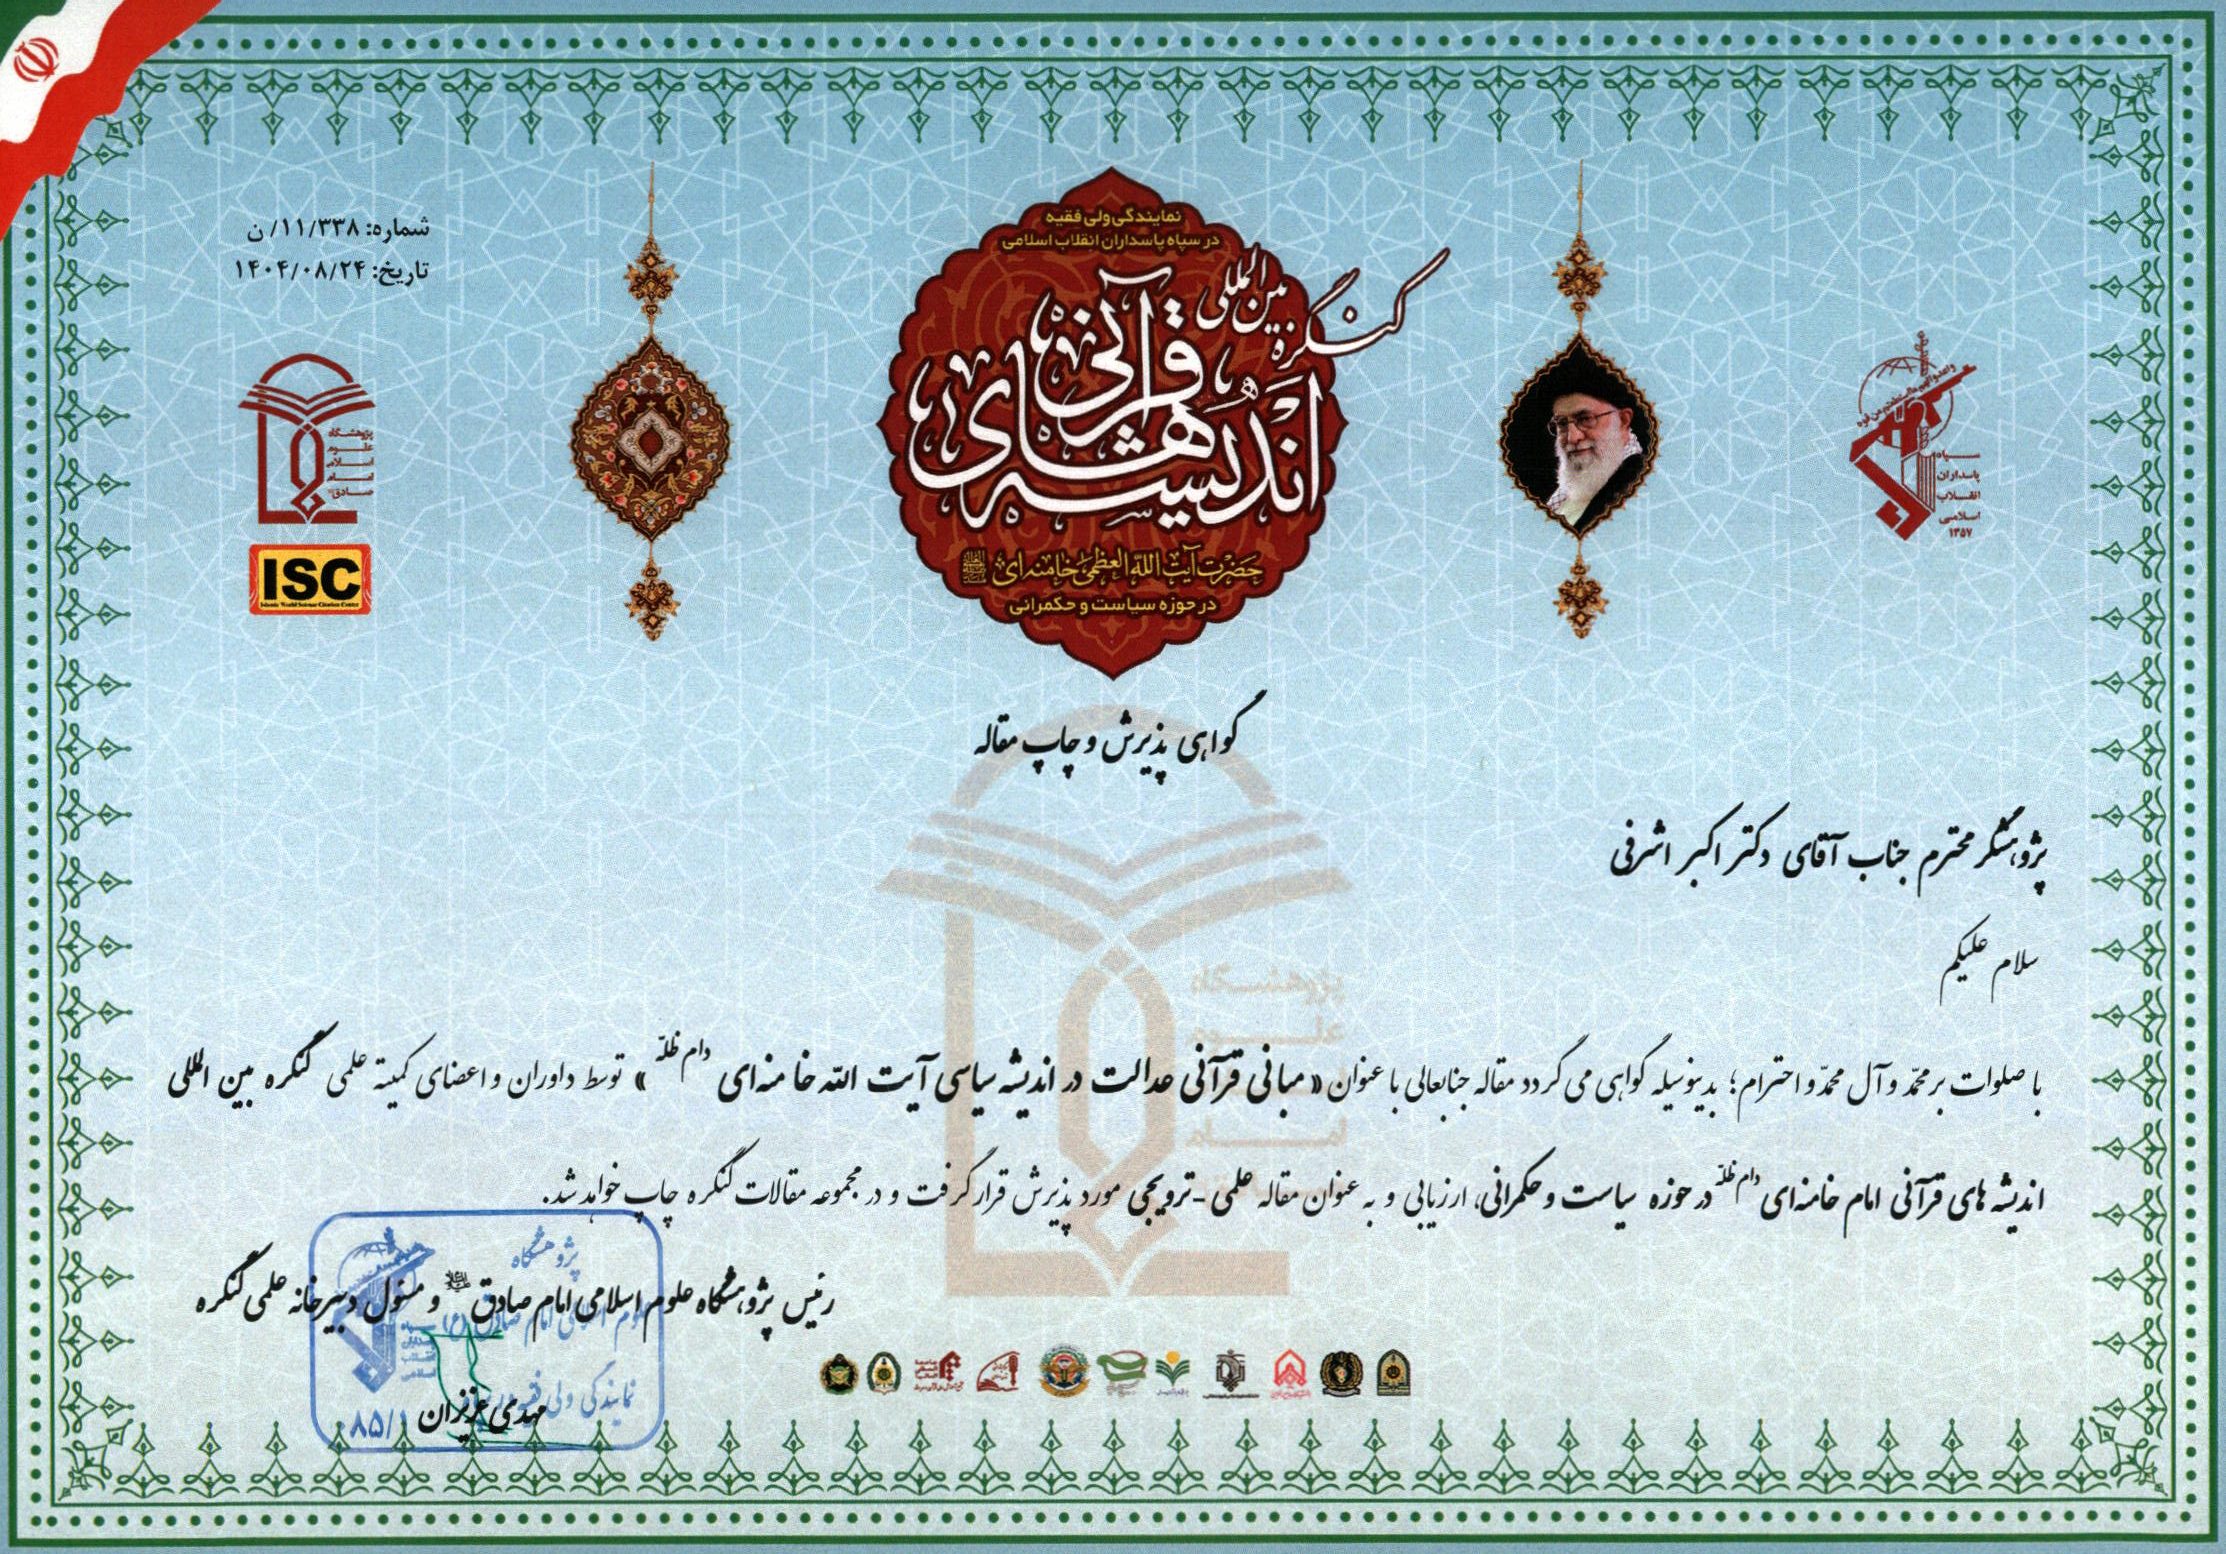 شماره: ۱۱/۳۳۸/ ن
تاریخ: ۱۴۰۴/۰۸/۲۴
نمایندگی ولی فقیه
در سپاه پاسداران انقلاب اسلامی
کنگره بین المللی
اندیشه های قرآنی
حضرت آیت الله العظمی خامنه ای
در حوزه سیاست و حکمرانی
سپاه
پاسداران
انقلاب
اسلامی
۱۳۵۷
پژوهشگاه
علوم
اسلامی
امام
صادق
ISC
Islamic World Science Citation Center
گواهی پذیرش و چاپ مقاله
پژوهشگر محترم جناب آقای دکتر اکبر اشرفی
سلام علیکم
با صلوات بر محمّد و آل محمّد و احترام؛ بدینوسیله گواهی می گردد مقاله جنابعالی با عنوان « مبانی قرآنی عدالت در اندیشه سیاسی آیت الله خامنه ای دام ظلّه » توسط داوران و اعضای کمیته علمی کنگره بین المللی
اندیشه های قرآنی امام خامنه ای دام ظلّه در حوزه سیاست و حکمرانی، ارزیابی و به عنوان مقاله علمی - ترویجی مورد پذیرش قرار گرفت و در مجموعه مقالات کنگره چاپ خواهد شد.
رئیس پژوهشگاه علوم اسلامی امام صادق و مسئول دبیرخانه علمی کنگره
مهدی عزیزان
پژوهشگاه
علوم اسلامی امام صادق (ع)
نمایندگی ولی فقیه
۸۵/۱